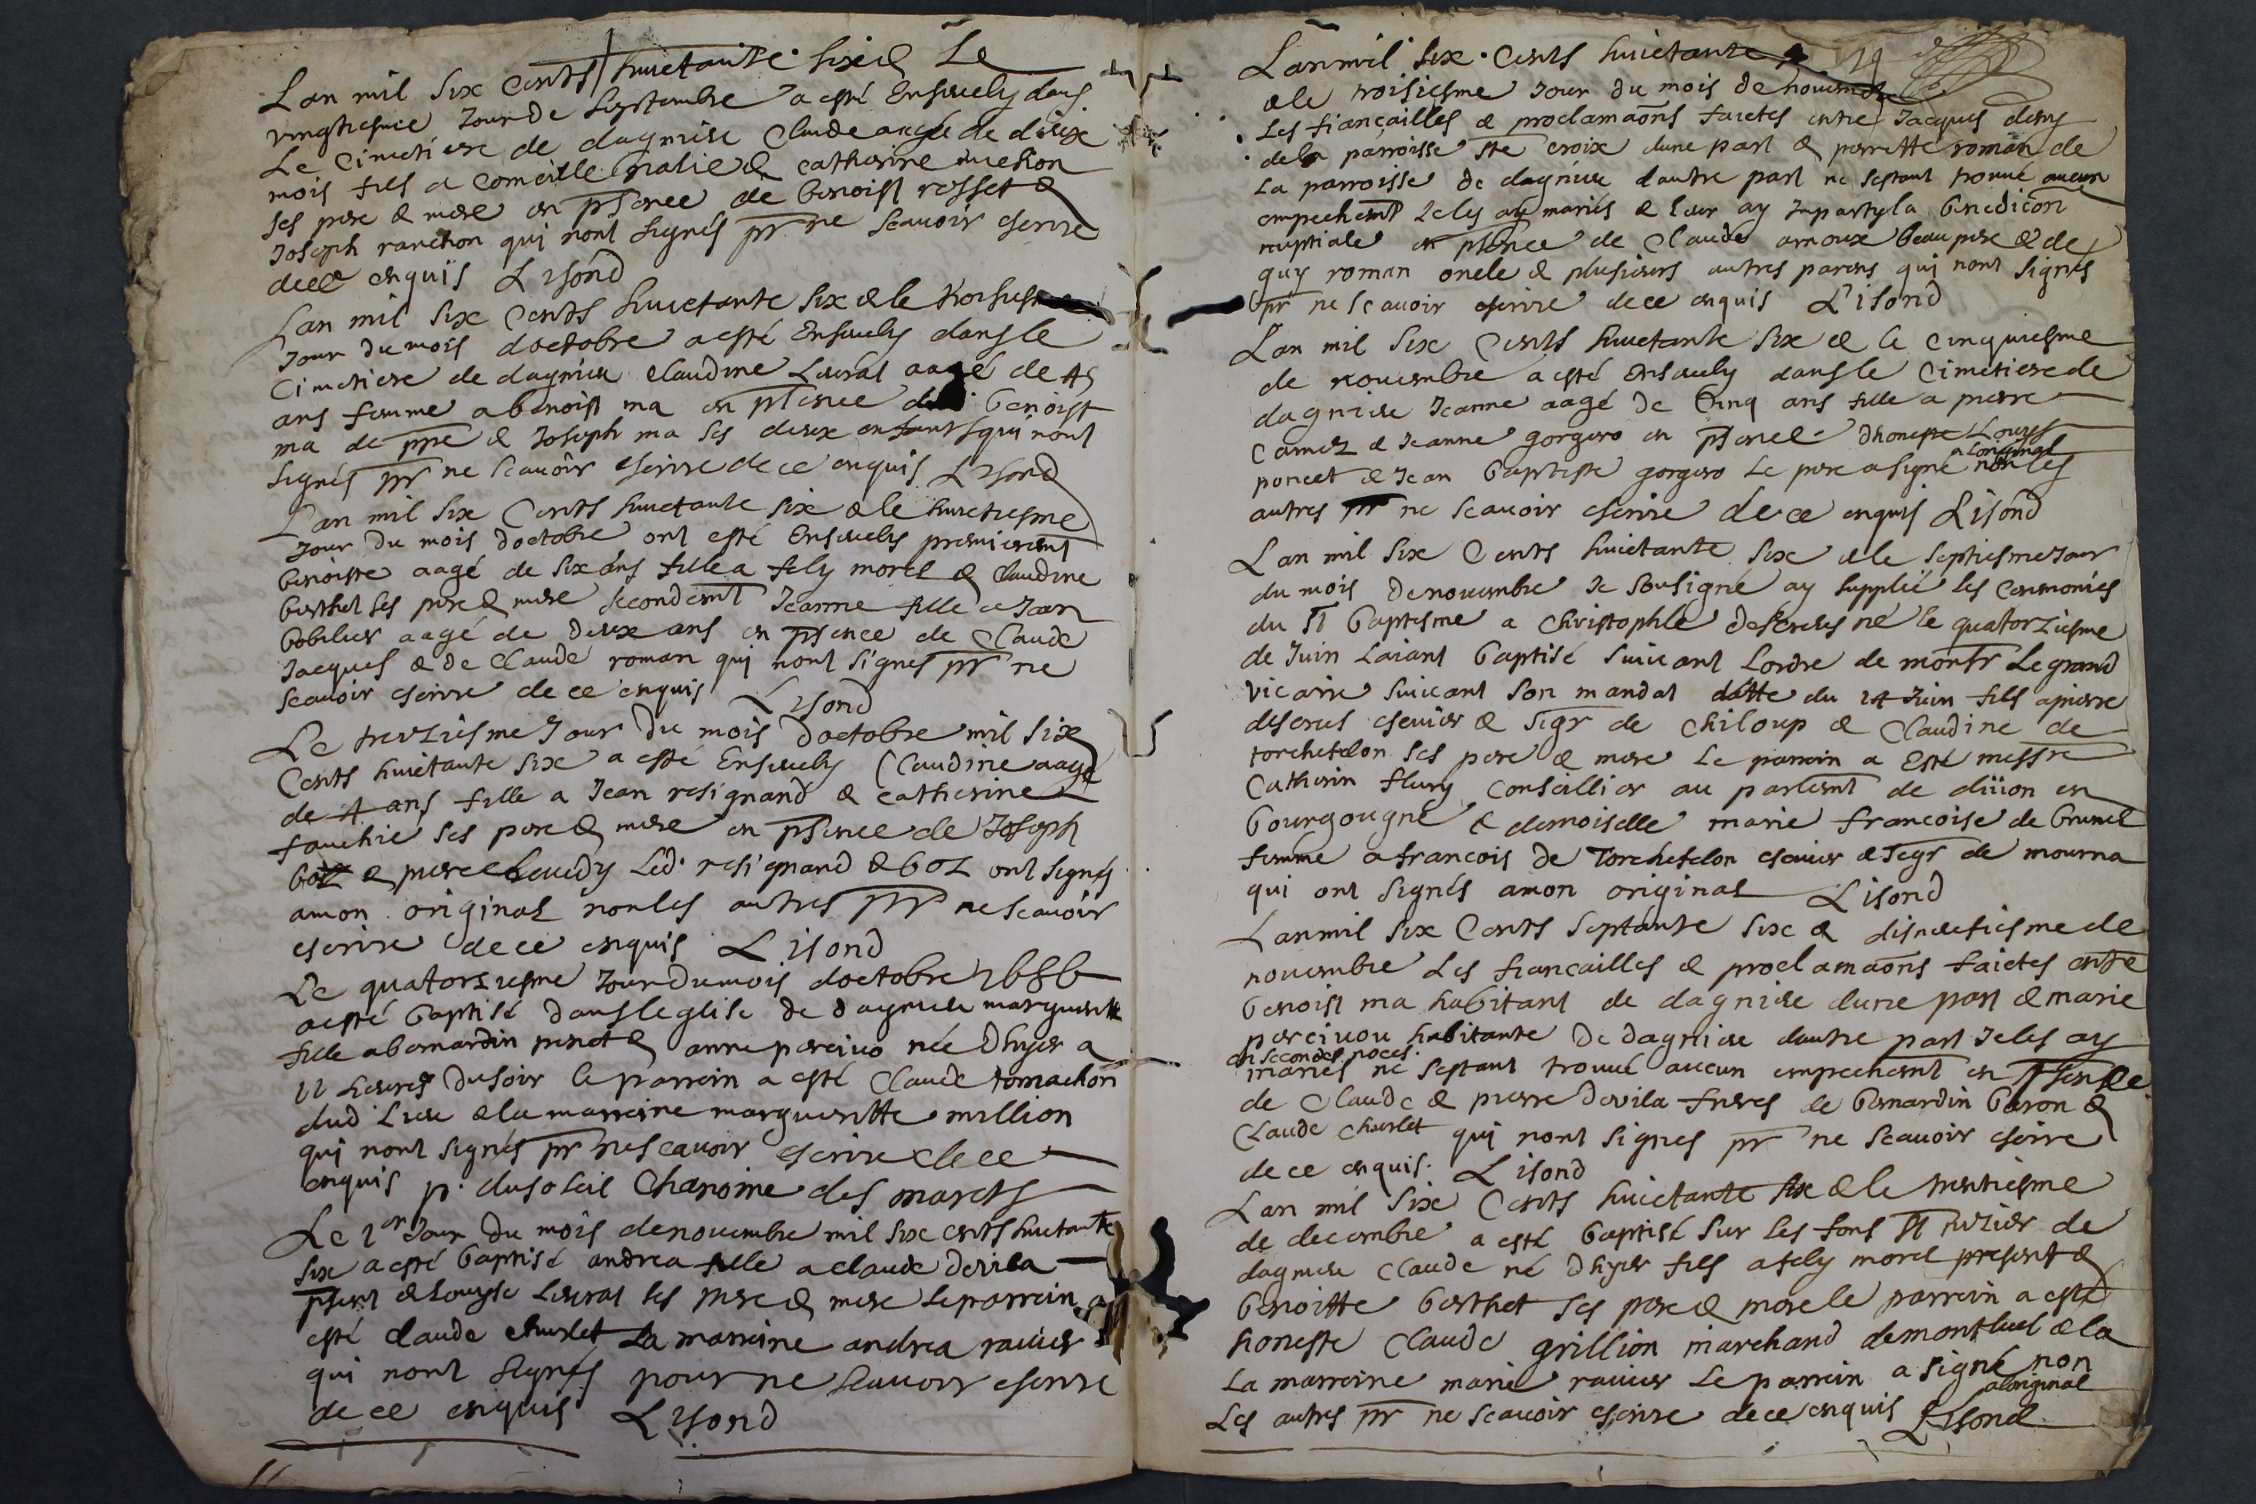 Lan mil six cents huictante six & Le
vingtiesme Jour de septembre a esté Ensevely dans
Le Cimetiere de dagnieu Claude aagé de dix
mois fils a & catherine
ses pere & mere en psence de benoist rosset &
Joseph ranchon qui nont signés pr ne scavoir escrire
de ce enquis Lisond
Lan mil six Cents huictante six & le troisiesme
Jour du mois doctobre a esté Ensevely dans le
Cimetiere de dagnieu Claudine Leurat aagé de 45
ans femme a benoist ma en psence de benoist
ma de ppe & Joseph ma ses deux enfants qui nont
signés pr ne scavoir escrire de ce enquis Lisond
Lan mil six Cents huictante six & le huictiesme
Jour du mois doctobre ont esté Ensevelys premieremt
benoiste aagé de six ans fille a fely morel & Claudine
berthet ses pere & mere secondemt Jeanne fille a Jean
bobelier aagé de deux ans en psence de Claude
Jacques & de Claude roman qui nont signes pr ne
scavoir escrire de ce enquis Lisond
Le treiziesme Jour du mois doctobre mil six
Cents huictante six a esté Ensevely Claudine aagé
de 4 ans fille a Jean resignand & catherine
fauchie ses pere & mere en psence de Joseph
boz & pierre Led. resignand & boz ont signés
amon original non les autres pr ne scavoir
escrire de ce enquis Lisond
Le quatorziesme Jour du mois doctobre 1686
a esté baptisé dans leglise de dagnieu margueritte
fille a bernardin penet & anne perciuo née Dhyer a
11 heures du soir le parrein a esté Claude tomachon
dud Lieu & la marreine margueritte million
qui nont signés pr ne scavoir escrire de ce
enquis p. dusoleil Chanoine des marets
Le 1er Jour du mois de novembre mil six cents huictante
six a esté baptisé andrea fille a claude Devila
psent & Louyse Leurat ses pere & mere Le parrein a
esté claude churlet La marreine andrea ravier
qui nont signés pour ne scavoir escrire
de ce enquis Lisond
Lan mil six cents huictante 19
& le troisiesme Jour du mois de novembre
Les fiançailles & proclamaons faictes entre Jacques deny
de la parroisse Ste croix dune part & perrette roman de
La parroisse de dagnieu dautre part ne sestant trouvé aucun
empechemt Je les ay mariés & leur ay Imparty la benediction
nuptiale en psence de Claude arnoux beau pere & de
guy roman oncle & plusieurs autres parens qui nont signés
pr ne scavoir escrire de ce enquis Lisond
Lan mil six Cents huictante six & le cinquiesme
de novembre a esté ensevely dans le Cimetiere de
dagnieu Jeanne aagé de Cinq ans fille a pierre
Camez & Jeanne gorgero en psence dhoneste Louys
poncet & Jean baptiste gorgero Le pere a signé a loriginal non les
autres pr ne scavoir escrire de ce enquis Lisond
Lan mil six Cents huictante six & le septiesme Jour
du mois de novembre Je sousigné ay supplié les ceremonies
du St baptesme a Christophle né le quatorziesme
de Juin Laiant baptisé suivant Lordre de monsr Le grand
vicaire suivant son mandat datte du 14 Juin fils a pierre
escuier & sigr de chiloup & Claudine de
torchefelon ses pere & mere Le parrein a Esté messre
Catherin fleury conseillier au parlemt de diiion en
bourgougne & demoiselle marie francoise de brunel
femme a francois de Torchefelon escuier & segr de mourna
qui ont signés amon original Lisond
Lan mil six Cents septante six & disneufiesme de
novembre Les fiancailles & proclamaons faictes entre
benoist ma habitant de dagnieu dune part & marie
percivou habitante de dagnieu dautre part Je les ay
mariés en secondes noces ne sestant trouvé aucun empechemt en psence
de Claude & pierre Devila freres de bernardin baron &
Claude churlet qui nont signes pr ne scavoir escrire
de ce enquis. Lisond
Lan mil six Cents huictante six & le trentiesme
de decembre a esté baptisé sur les fons St de
dagnieu Claude né Dhyer fils a fely morel present &
benoitte berthet ses pere & mere le parrein a esté
honeste Claude grillion marchand de montluel & la
La marreine marie ravier Le parrein a signé a loriginal non
Les autres pr ne scavoir escrire de ce enquis Lisond